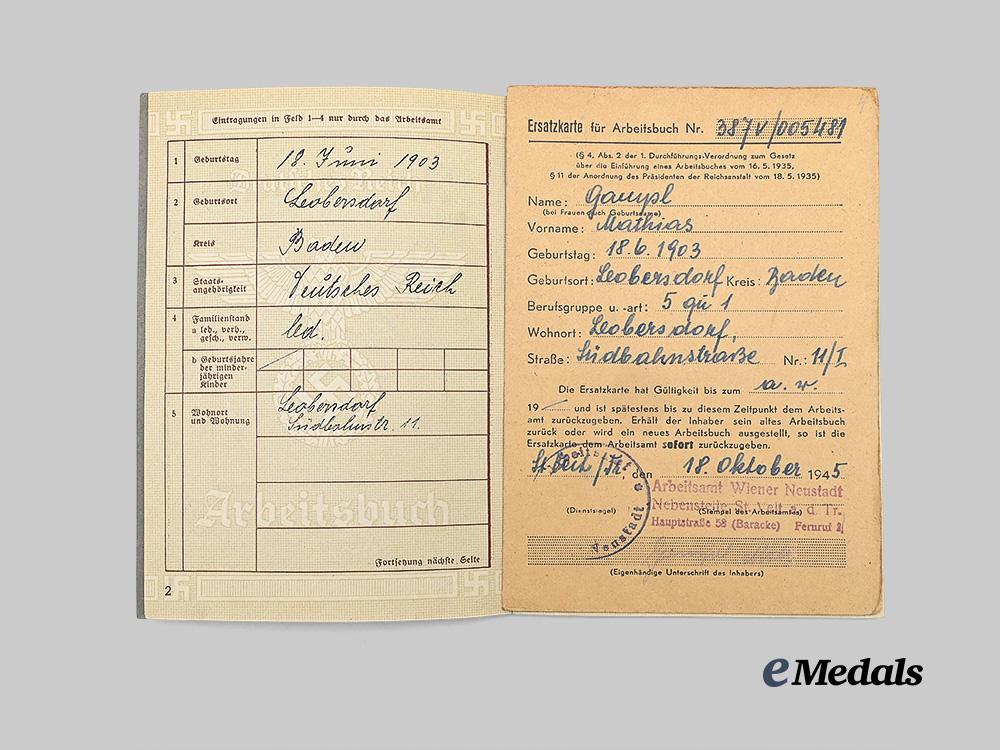 Eintragungen in Feld 1—4 nur durch das Arbeitsamt
1 Geburtstag 18. Juni 1903
Deutsches Reich
2 Geburtsort Leobersdorf
Kreis Baden
3 Staats-
angehörigkeit Deutsches Reich
4 Familienstand
a led., verh.,
gesch., verw. led.
b Geburtsjahre
der minder-
jährigen
Kinder
5 Wohnort
und Wohnung
Leobersdorf
Südbahnstr. 11.
Arbeitsbuch
Fortsetzung nächste Seite
2
Ersatzkarte für Arbeitsbuch Nr. 387V/005481
(§ 4, Abs. 2 der 1. Durchführungs-Verordnung zum Gesetz
über die Einführung eines Arbeitsbuches vom 16. 5. 1935,
§ 11 der Anordnung des Präsidenten der Reichsanstalt vom 18. 5. 1935)
Name: Gampl
(bei Frauen auch Geburtsname)
Vorname: Mathias
Geburtstag: 18.6.1903
Geburtsort: Leobersdorf Kreis: Baden
Berufsgruppe u. -art: 5 qu 1
Wohnort: Leobersdorf,
Straße: Südbahnstraße Nr.: 11/I
Die Ersatzkarte hat Gültigkeit bis zum a. w.
19 und ist spätestens bis zu diesem Zeitpunkt dem Arbeits-
amt zurückzugeben. Erhält der Inhaber sein altes Arbeitsbuch
zurück oder wird ein neues Arbeitsbuch ausgestellt, so ist die
Ersatzkarte dem Arbeitsamt sofort zurückzugeben.
St. Veit/Tr., den 18. Oktober 1945
Arbeitsamt Wiener Neustadt
Nebenstelle St. Veit a. d. Tr.
(Dienstsiegel) (Stempel des Arbeitsamtes)
Hauptstraße 58 (Baracke) Fernruf 2
Neustadt
(Eigenhändige Unterschrift des Inhabers)
eMedals